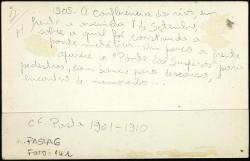 1905. A confluência dos rios, em
frente a avenida 7 de Setembro,
sobre a qual foi construida a
ponte metálica. Um pouco a frente
aparece a "Ponte dos Suspiros", para
pedestres, com banco para descanso,
encontro de namorados...
CF. Posta 1901-1910
PASTA 6
Foto: 141